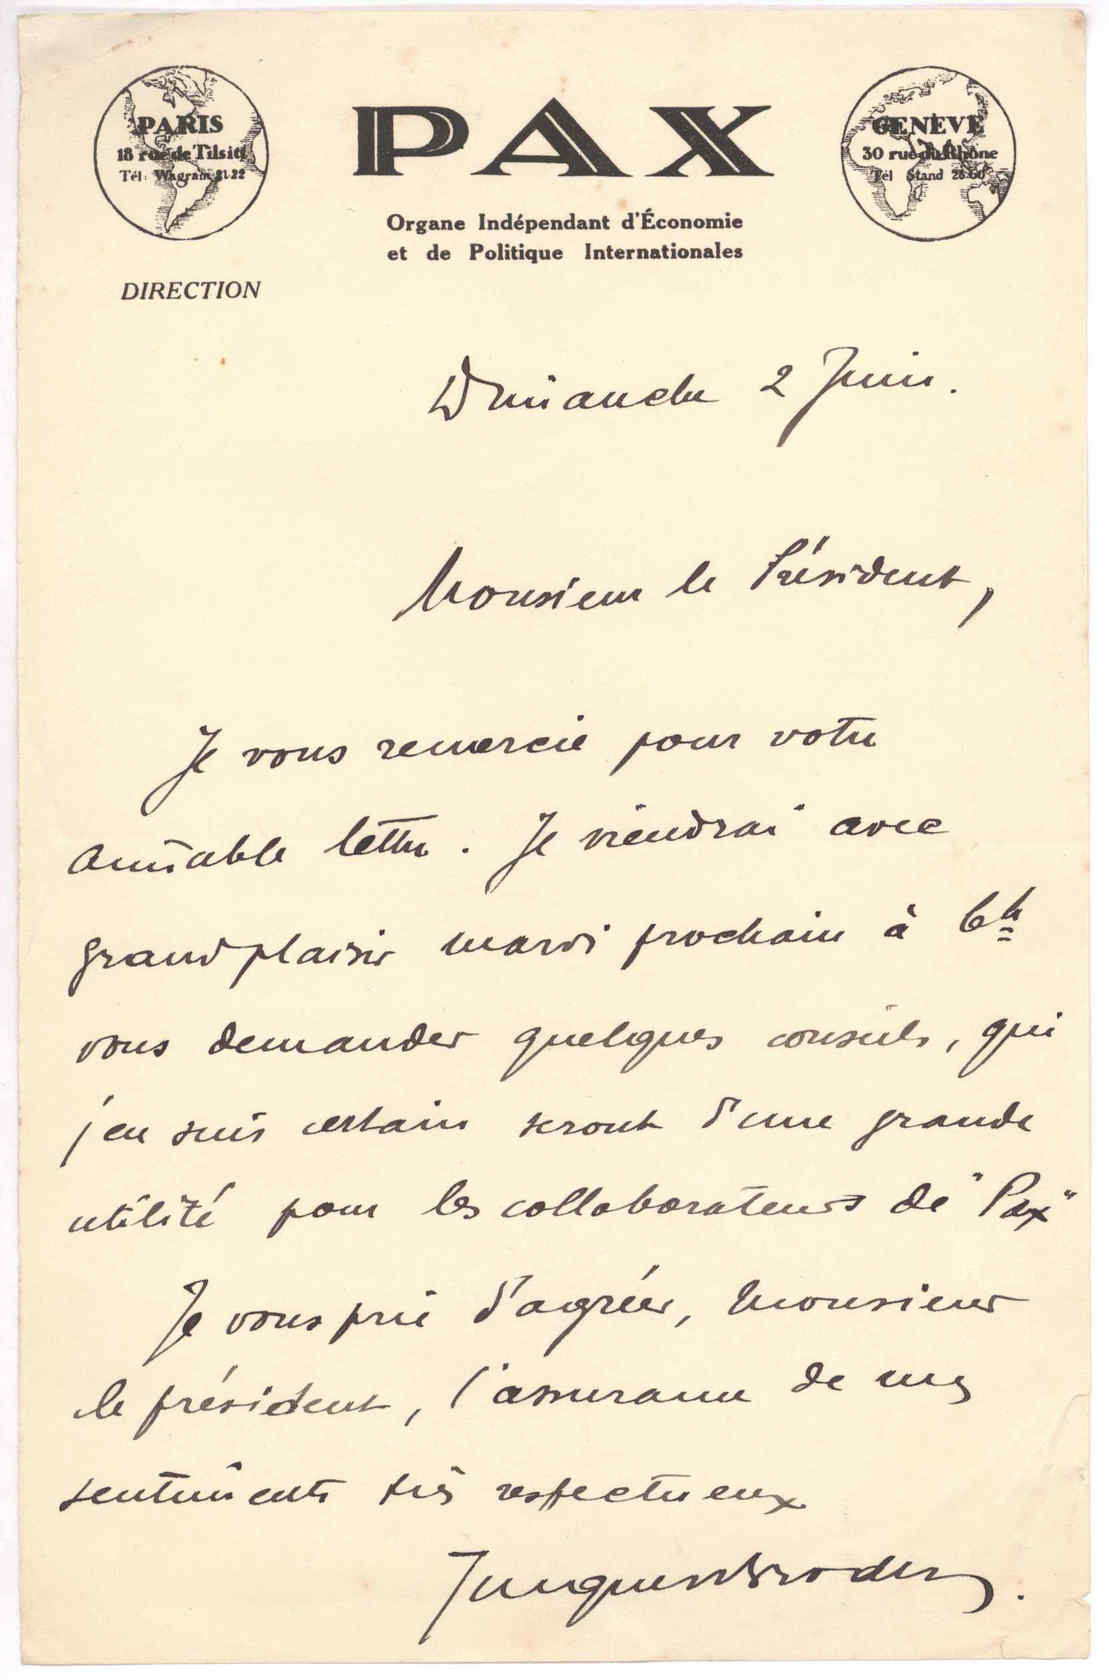 PARIS
18 rue de Tilsitt
Tél: Wagram 21-22
PAX
GENÈVE
30 rue du Rhône
Tél Stand 28-60
Organe Indépendant d'Économie
et de Politique Internationales
DIRECTION
Dimanche 2 Juin.
Monsieur le Président,
Je vous remercie pour votre
aimable lettre. Je viendrai avec
grand plaisir mardi prochain à 6h
vous demander quelques conseils, qui
j'en suis certain seront d'une grande
utilité pour les collaborateurs de "Pax"
Je vous prie d'agréer, Monsieur
le président, l'assurance de mes
sentiments très respectueux